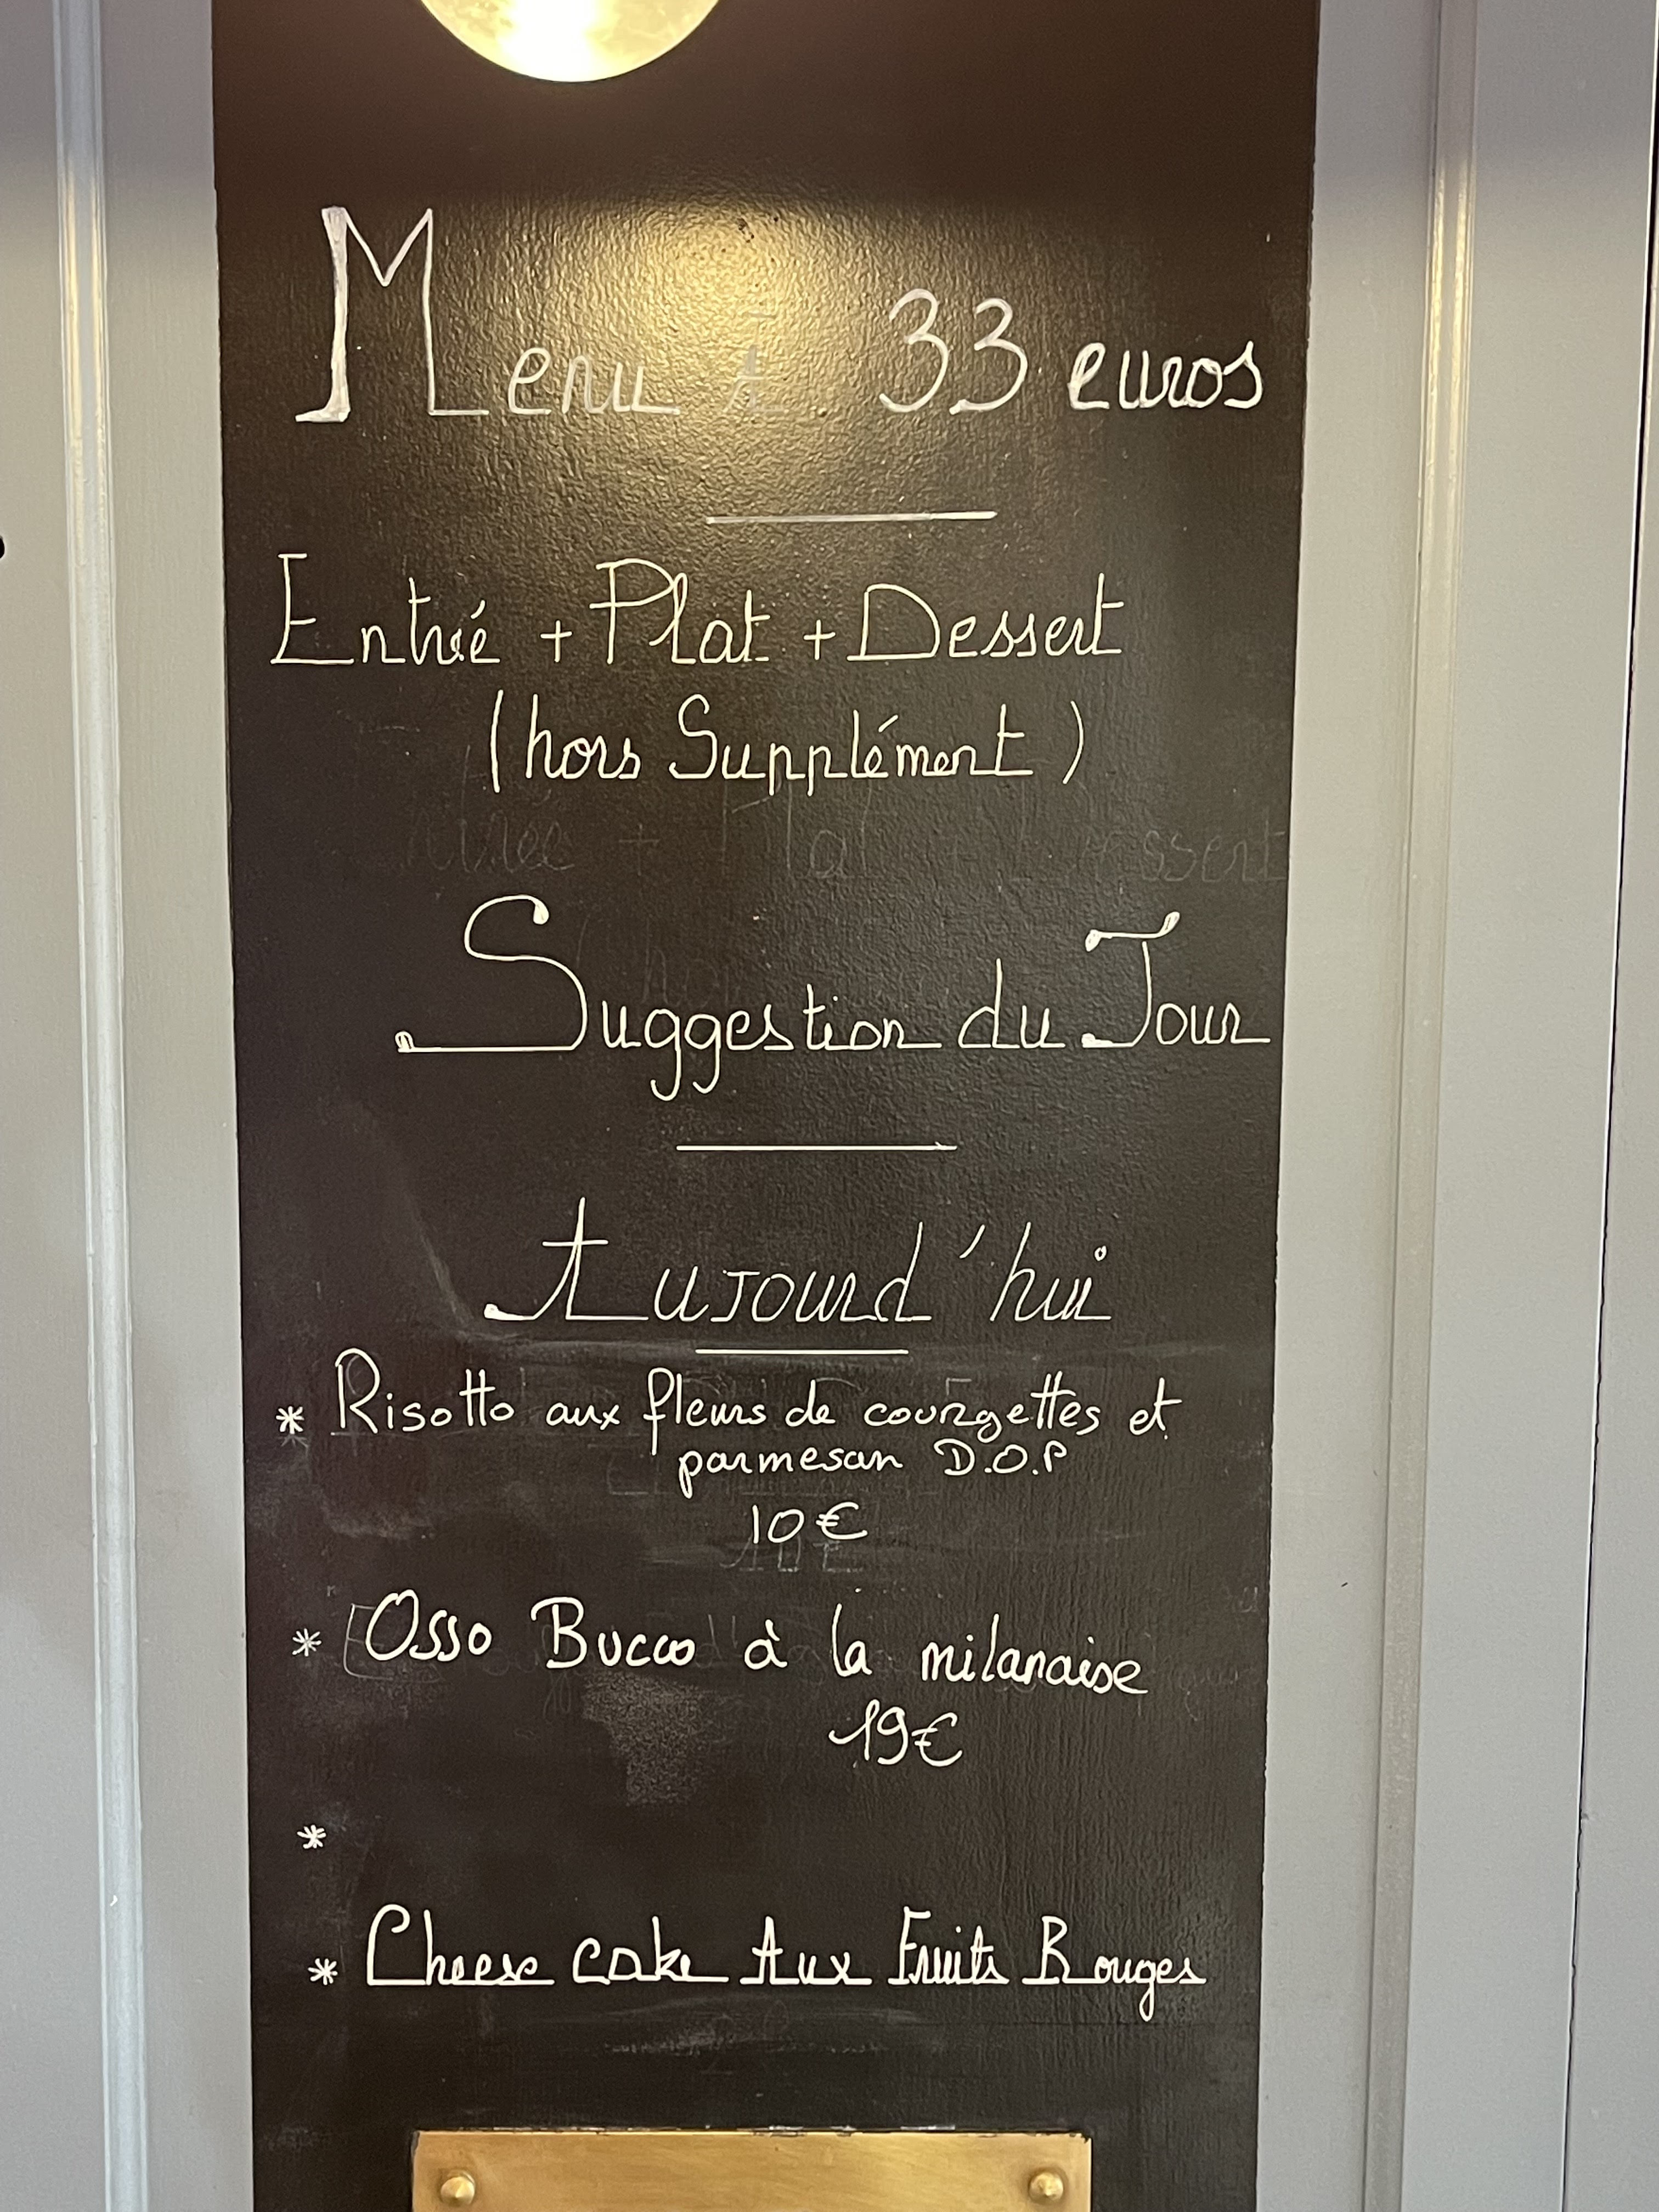 Menu à 33 euros
Entrée + Plat + Dessert
(hors Supplément)
Suggestion du Jour
Aujourd'hui
* Risotto aux fleurs de courgettes et
parmesan D.O.P
10€
* Osso Bucco à la milanaise
19€
*
* Cheese cake Aux Fruits Rouges